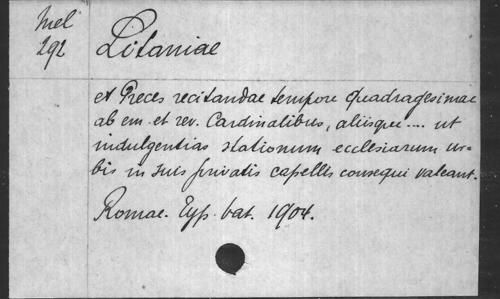 Mel
292
Litaniae
et Preces recitandae tempore Quadragesimae
ab em. et rev. Cardinalibus, aliisque .... ut
indulgentias stationum ecclesiarum ur-
bis in suis privatis capellis consequi valeant.
Romae. Typ. Vat. 1904.